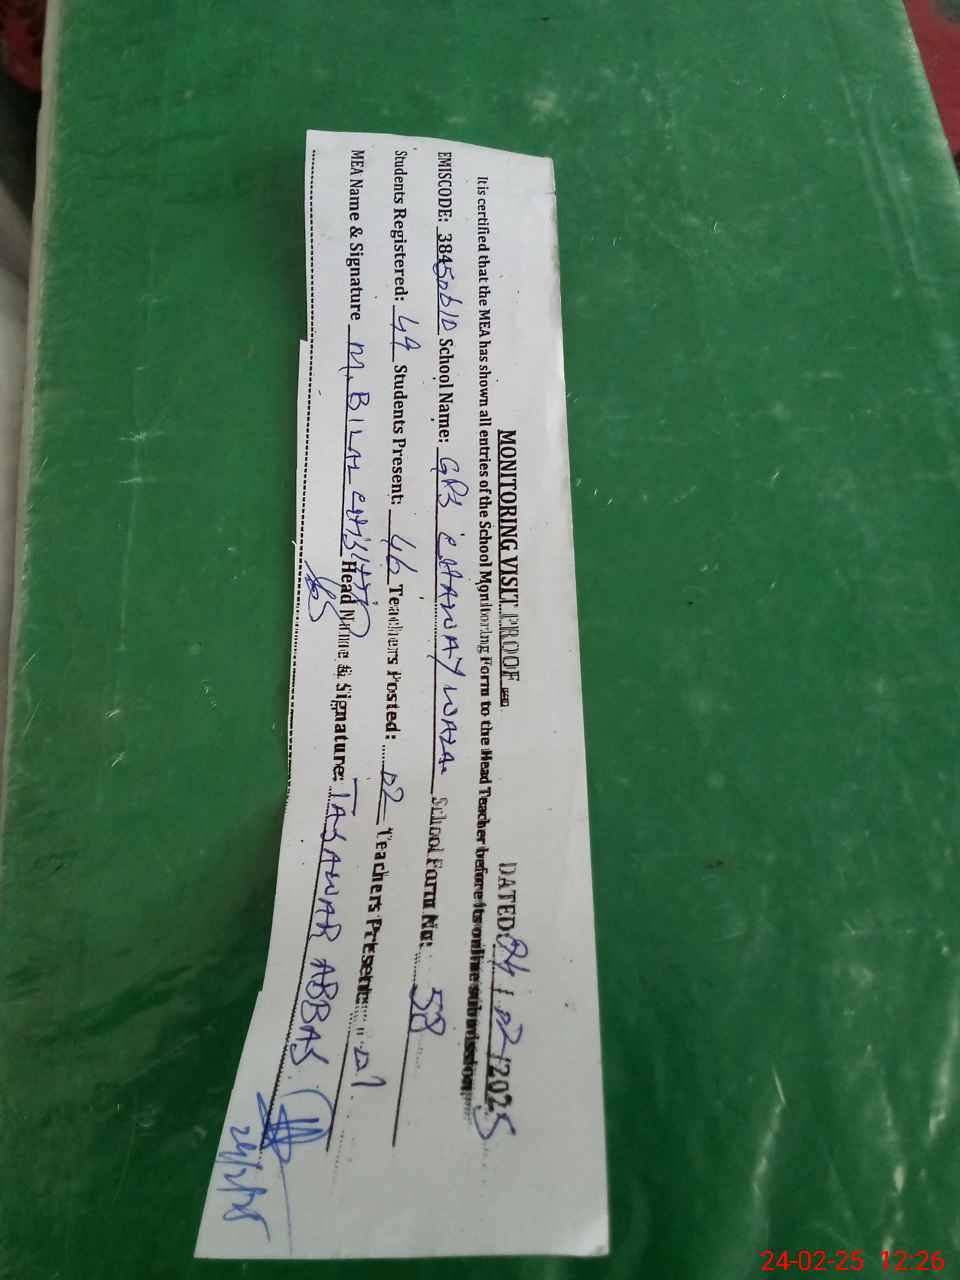 MONITORING VISIT PROOF DATED: 24/02/2025
It is certified that the MEA has shown all entries of the School Monitoring Form to the Head Teacher before its online submission.
EMISCODE: 38450610 School Name: GPS CHAWAY WALA. School Form No: 58
Students Registered: Students Present: 46 Teachers Posted: 02 Teachers Present: 01
MEA Name & Signature M. BILAL CHISHTI Head Name & Signature: TASAWAR ABBAS
24/2/25
24-02-25 12:26